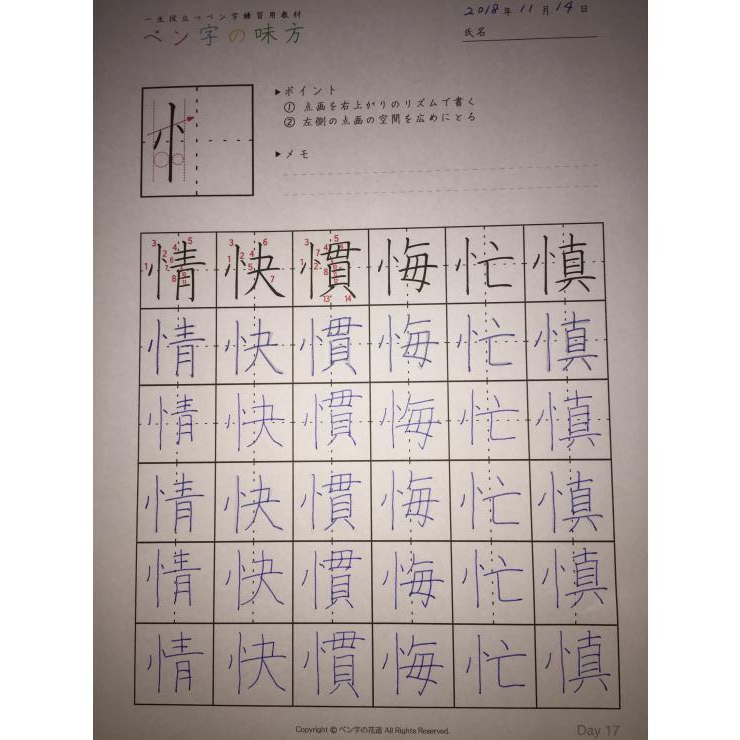 一生役立つペン字練習用教材
ペン字の味方
2018年11月14日
氏名
▶ポイント
① 点画を右上がりのリズムで書く
② 左側の点画の空間を広めにとる
▶メモ
忄
情 快 慣 悔 忙 慎
情 快 慣 悔 忙 慎
情 快 慣 悔 忙 慎
情 快 慣 悔 忙 慎
情 快 慣 悔 忙 慎
情 快 慣 悔 忙 慎
Copyright © ペン字の花道 All Rights Reserved.
Day 17